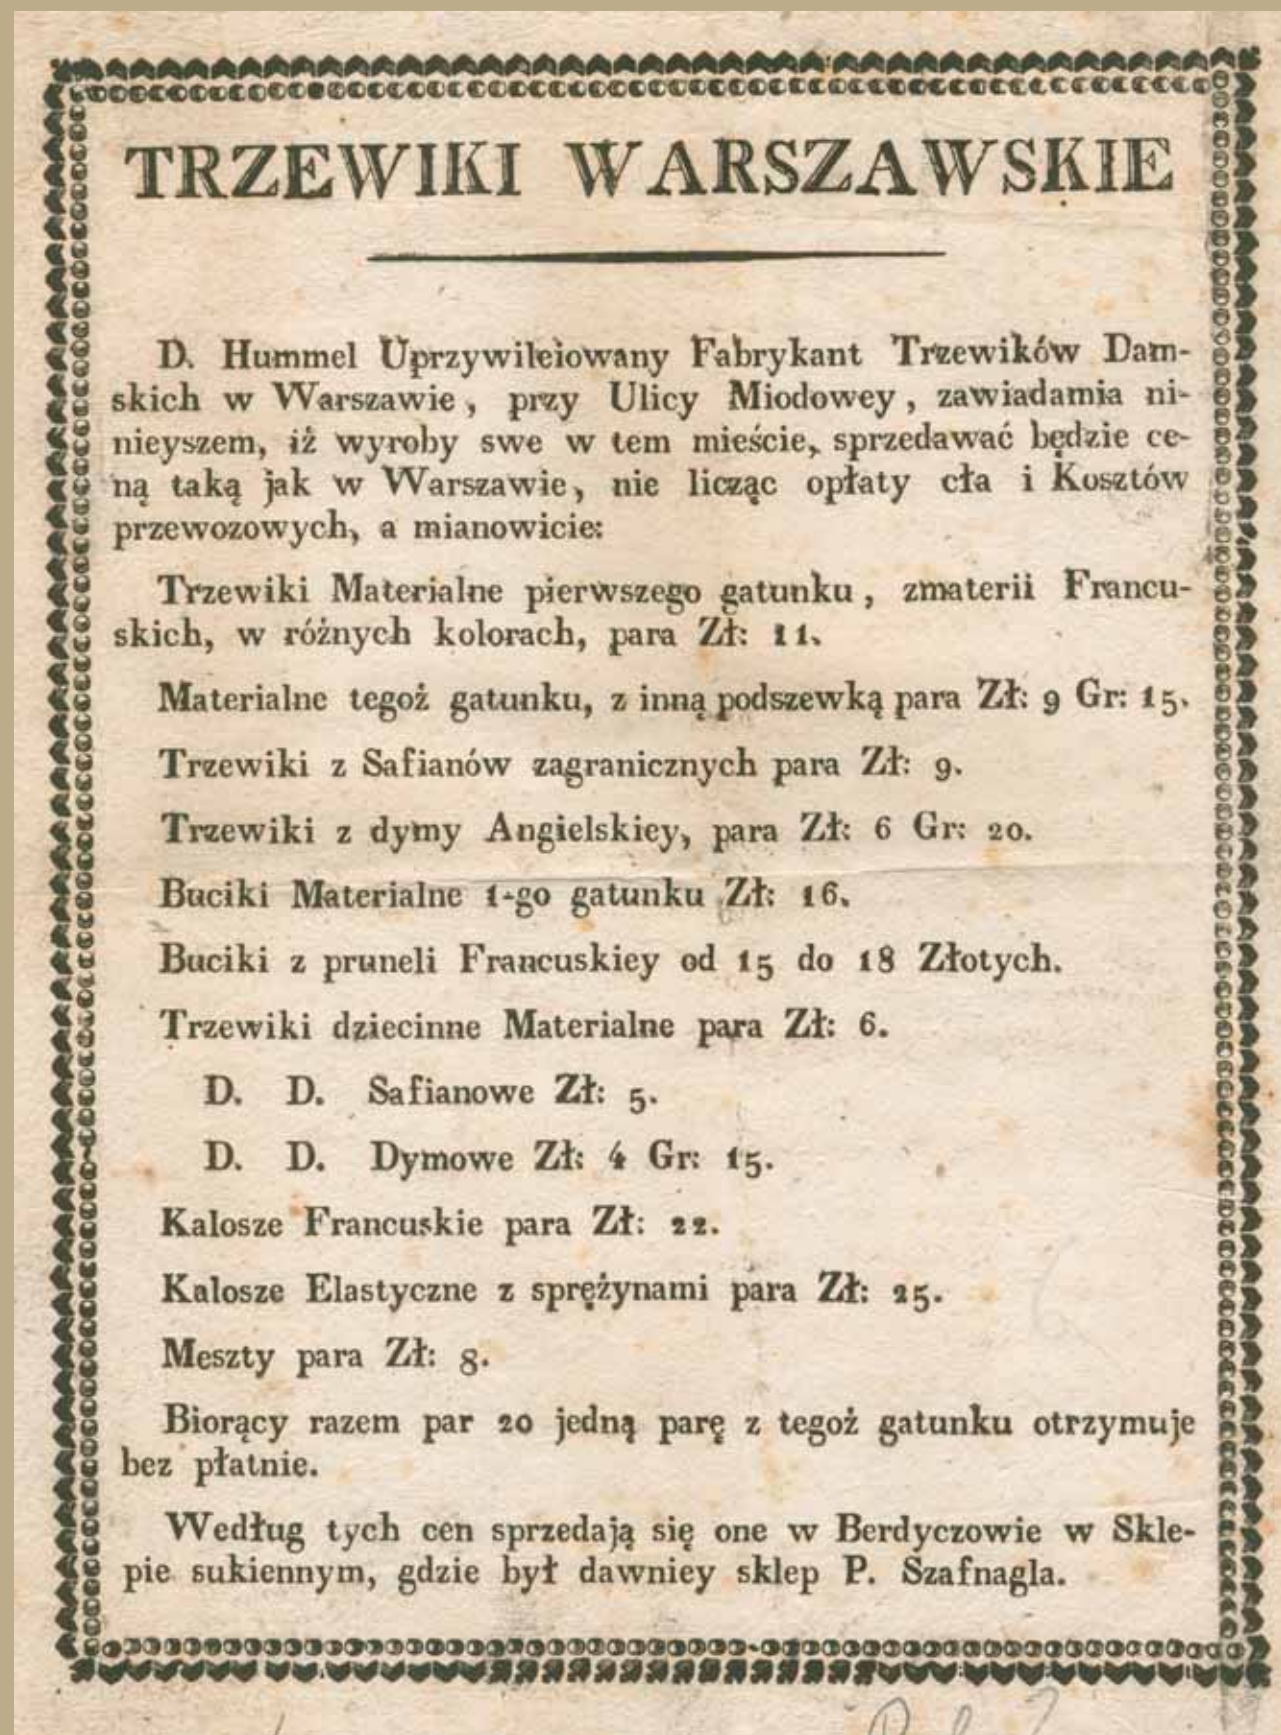 TRZEWIKI WARSZAWSKIE
D. Hummel Uprzywileiowany Fabrykant Trzewików Dam-
skich w Warszawie, przy Ulicy Miodowey, zawiadamia ni-
nieyszem, iż wyroby swe w tem mieście, sprzedawać będzie ce-
ną taką jak w Warszawie, nie licząc opłaty cła i Kosztów
przewozowych, a mianowicie:
Trzewiki Materialne pierwszego gatunku, zmaterii Francu-
skich, w różnych kolorach, para Zł: 11.
Materialne tegoż gatunku, z inną podszewką para Zł: 9 Gr: 15.
Trzewiki z Safianów zagranicznych para Zł: 9.
Trzewiki z dymy Angielskiey, para Zł: 6 Gr: 20.
Buciki Materialne 1-go gatunku Zł: 16.
Buciki z pruneli Francuskiey od 15 do 18 Złotych.
Trzewiki dziecinne Materialne para Zł: 6.
D. D. Safianowe Zł: 5.
D. D. Dymowe Zł: 4 Gr: 15.
Kalosze Francuskie para Zł: 22.
Kalosze Elastyczne z sprężynami para Zł: 25.
Meszty para Zł: 8.
Biorący razem par 20 jedną parę z tegoż gatunku otrzymuje
bez płatnie.
Według tych cen sprzedają się one w Berdyczowie w Skle-
pie sukiennym, gdzie był dawniey sklep P. Szafnagla.